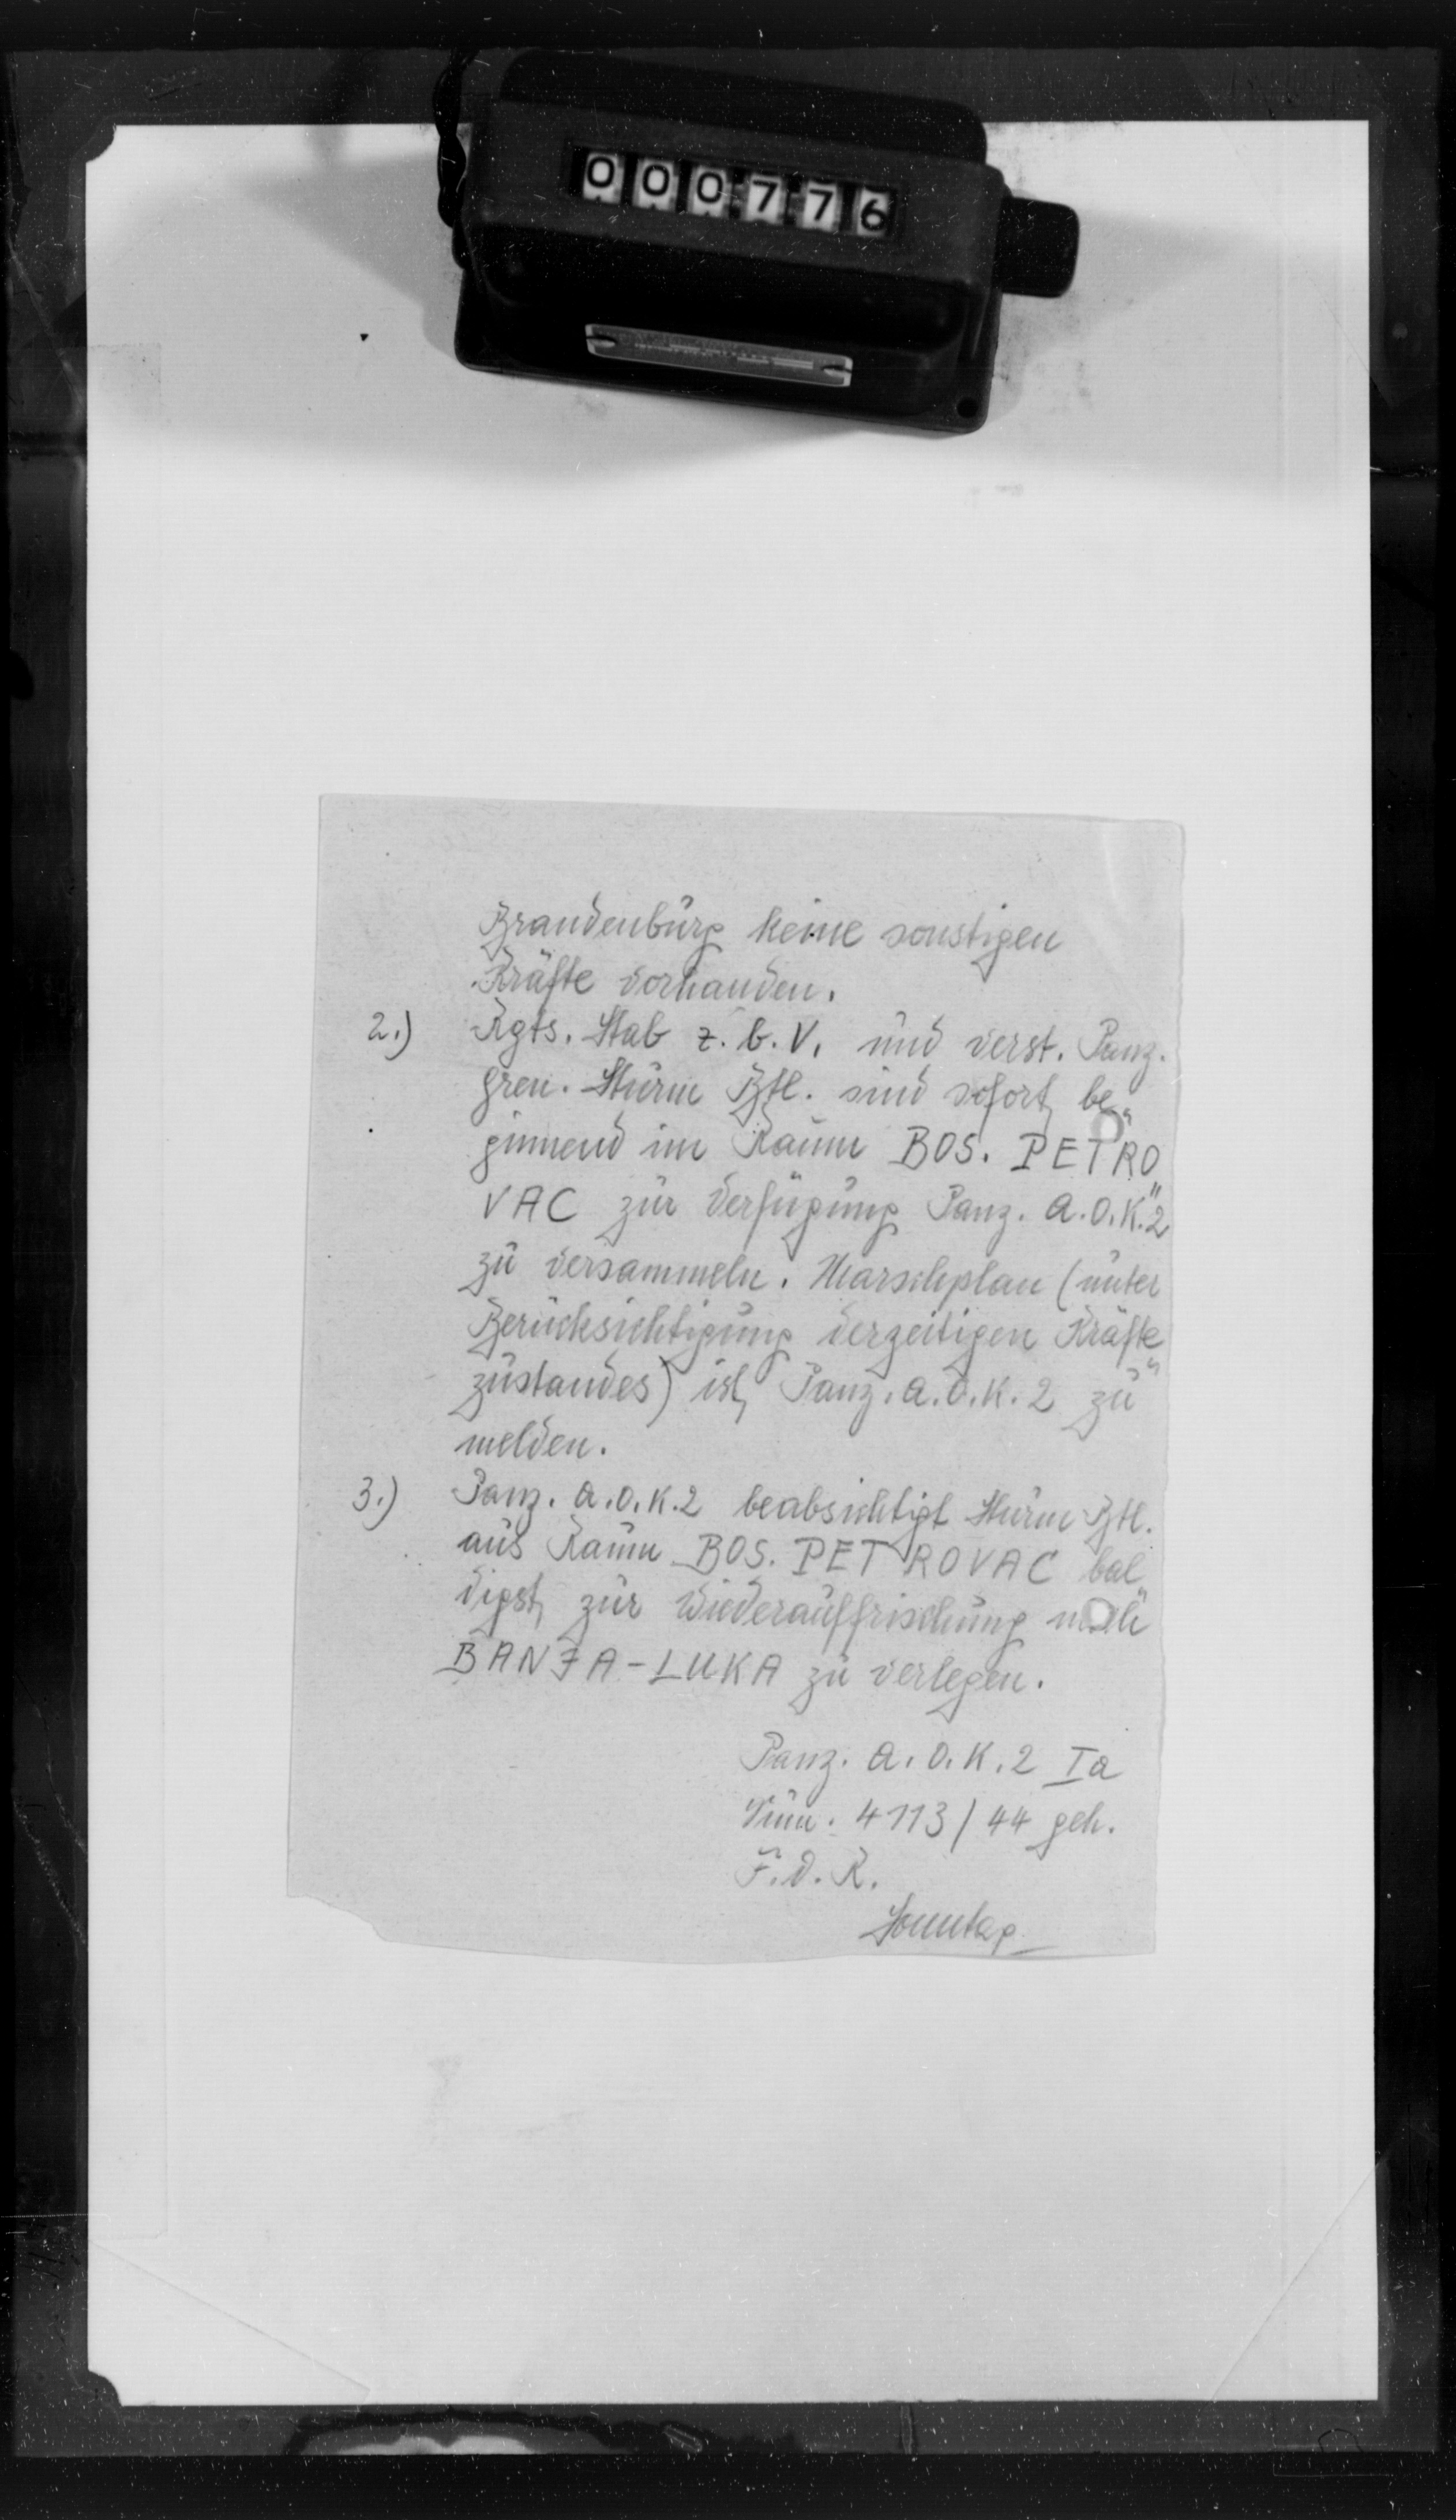 000776
Brandenburg keine sonstigen
Kräfte vorhanden.
2.) Rgts. Stab z. b. V. und verst. Panz.
gren. Sturm Btl. sind sofort be„
ginnend im Raum BOS. PETRO„
VAC zur Verfügung Panz. A.O.K. 2
zu versammeln. Marschplan (unter
Berücksichtigung derzeitigen Kräfte„
zustandes) ist Panz. A.O.K. 2 zu
melden.
3.) Panz. A.O.K. 2 beabsichtigt Sturm Btl.
aus Raum BOS. PETROVAC bal„
digst zur Wiederauffrischung nach
BANJA-LUKA zu verlegen.
Panz. A.O.K. 2 Ia
Num. 4113/44 geh.
F.d.R.
Sonntag